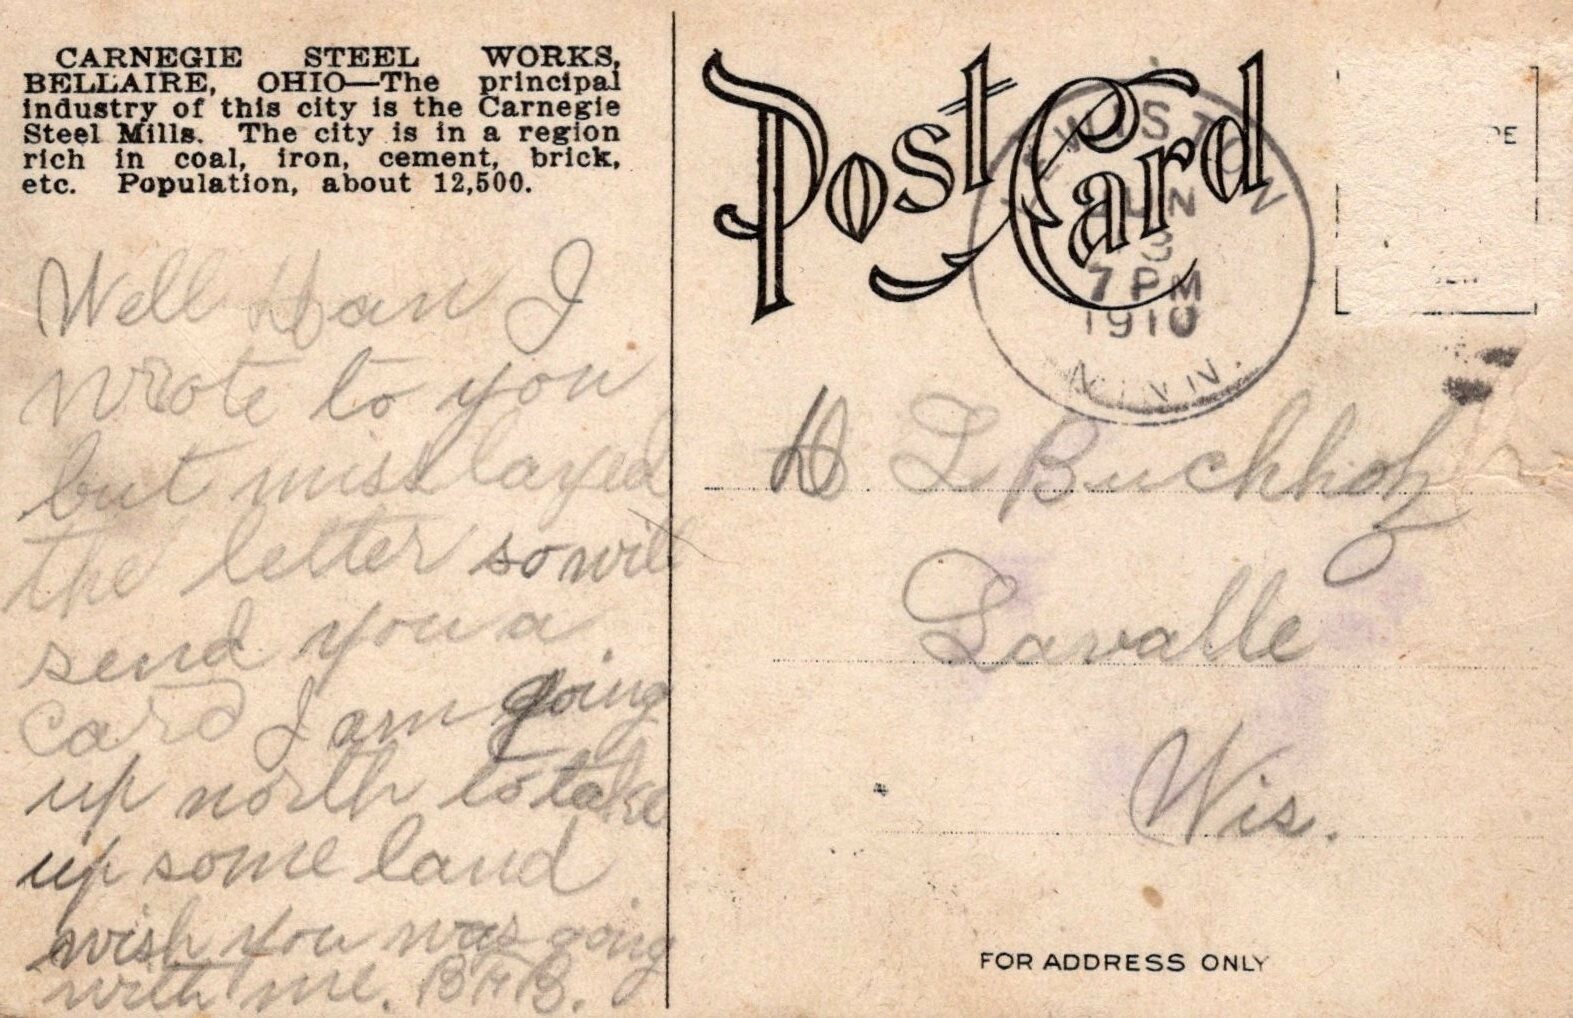 CARNEGIE STEEL WORKS,
BELLAIRE, OHIO—The principal
industry of this city is the Carnegie
Steel Mills. The city is in a region
rich in coal, iron, cement, brick,
etc. Population, about 12,500.
Well Dan I
wrote to you
but misslayed
the letter so will
send you a
card I am going
up north to take
up some land
wish you was going
with me. B H B.
Post Card
LEWISTON
JUN
3
7 PM
1910
MINN.
D L Buchholz
Lavalle
Wis.
FOR ADDRESS ONLY